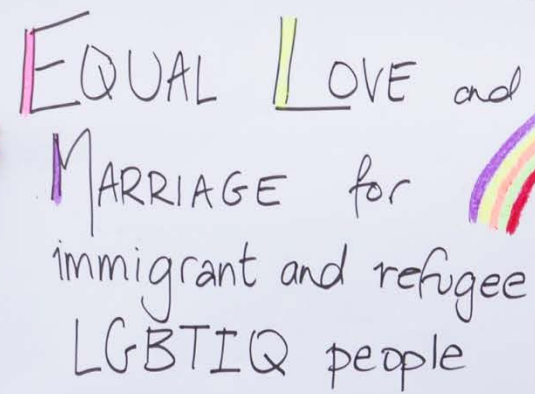 EQUAL LOVE and
MARRIAGE for
immigrant and refugee
LGBTIQ people